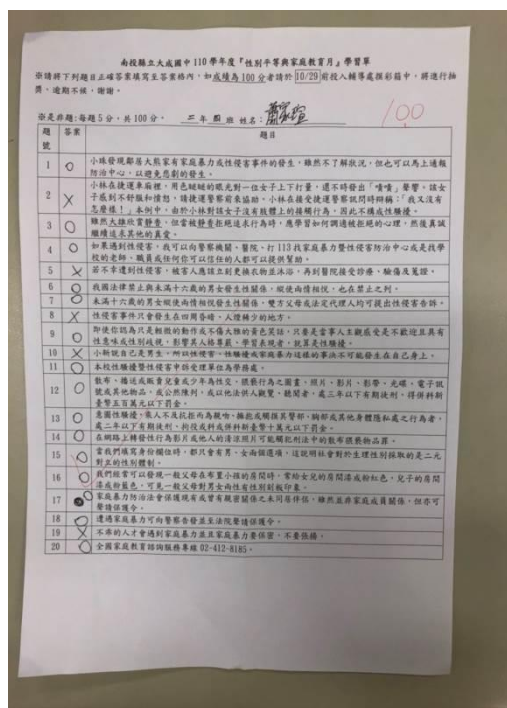 南投縣立大成國中 110 學年度『性別平等與家庭教育月』學習單
※請將下列題目正確答案填寫至答案格內，如成績為 100 分者請於 10/29 前投入輔導處摸彩箱中，將進行抽
獎，逾期不候，謝謝。
100
※是非題:每題 5 分，共 100 分。 二年 班 姓名:
題號 答案 題目
1 O 小珠發現鄰居大熊家有家庭暴力或性侵害事件的發生，雖然不了解狀況，但也可以馬上通報
防治中心，以避免悲劇的發生。
2 X 小林在捷運車廂裡，用色瞇瞇的眼光對一位女子上下打量，還不時發出「嘖嘖」聲響，該女
子感到不舒服和憤怒，請捷運警察前來協助。小林在接受捷運警察訊問時辯稱：「我又沒有
怎麼樣！」本例中，由於小林對該女子沒有肢體上的接觸行為，因此不構成性騷擾。
3 O 雖然大雄欣賞靜香，但當被靜香拒絕追求行為時，應學習如何調適被拒絕的心理，然後真誠
繼續追求其他的真愛。
4 O 如果遇到性侵害，我可以向警察機關、醫院、打 113 找家庭暴力暨性侵害防治中心或是找學
校的老師、職員或任何你可以信任的人都可以提供幫助。
5 X 若不幸遭到性侵害，被害人應該立刻更換衣物並沐浴，再到醫院接受診療、驗傷及蒐證。
6 O 我國法律禁止與未滿十六歲的男女發生性關係，縱使兩情相悅，也在禁止之列。
7 O 未滿十六歲的男女縱使兩情相悅發生性關係，雙方父母或法定代理人均可提出性侵害告訴。
8 X 性侵害事件只會發生在四周昏暗、人煙稀少的地方。
9 O 即使你認為只是輕微的動作或不傷大雅的黃色笑話，只要是當事人主觀感受是不歡迎且具有
性意味或性別歧視，影響其人格尊嚴、學習表現者，就算是性騷擾。
10 X 小新說自己是男生，所以性侵害、性騷擾或家庭暴力這樣的事決不可能發生在自己身上。
11 O 本校性騷擾暨性侵害申訴受理單位為學務處。
12 O 散布、播送或販賣兒童或少年為性交、猥褻行為之圖畫、照片、影片、影帶、光碟、電子訊
號或其他物品，或公然陳列，或以他法供人觀覽、聽聞者，處三年以下有期徒刑，得併科新
臺幣五百萬元以下罰金。
13 O 意圖性騷擾，乘人不及抗拒而為親吻、擁抱或觸摸其臀部、胸部或其他身體隱私處之行為者，
處二年以下有期徒刑、拘役或科或併科新臺幣十萬元以下罰金。
14 O 在網路上轉發性行為影片或他人的清涼照片可能觸犯刑法中的散布猥褻物品罪。
15 O 當我們填寫身份欄位時，都只會有男、女兩個選項，這說明社會對於生理性別採取的是二元
對立的性別體制。
16 O 我們經常可以發現一般父母在布置小孩的房間時，常給女兒的房間漆成粉紅色，兒子的房間
漆成粉藍色，可見一般父母對男女兩性有性別刻板印象。
17 O 家庭暴力防治法會保護現有或曾有親密關係之未同居伴侶，雖然並非家庭成員關係，但亦可
聲請保護令。
18 O 遭遇家庭暴力可向警察告發並至法院聲請保護令。
19 X 不乖的人才會遇到家庭暴力並且家庭暴力要保密，不要張揚。
20 O 全國家庭教育諮詢服務專線 02-412-8185。